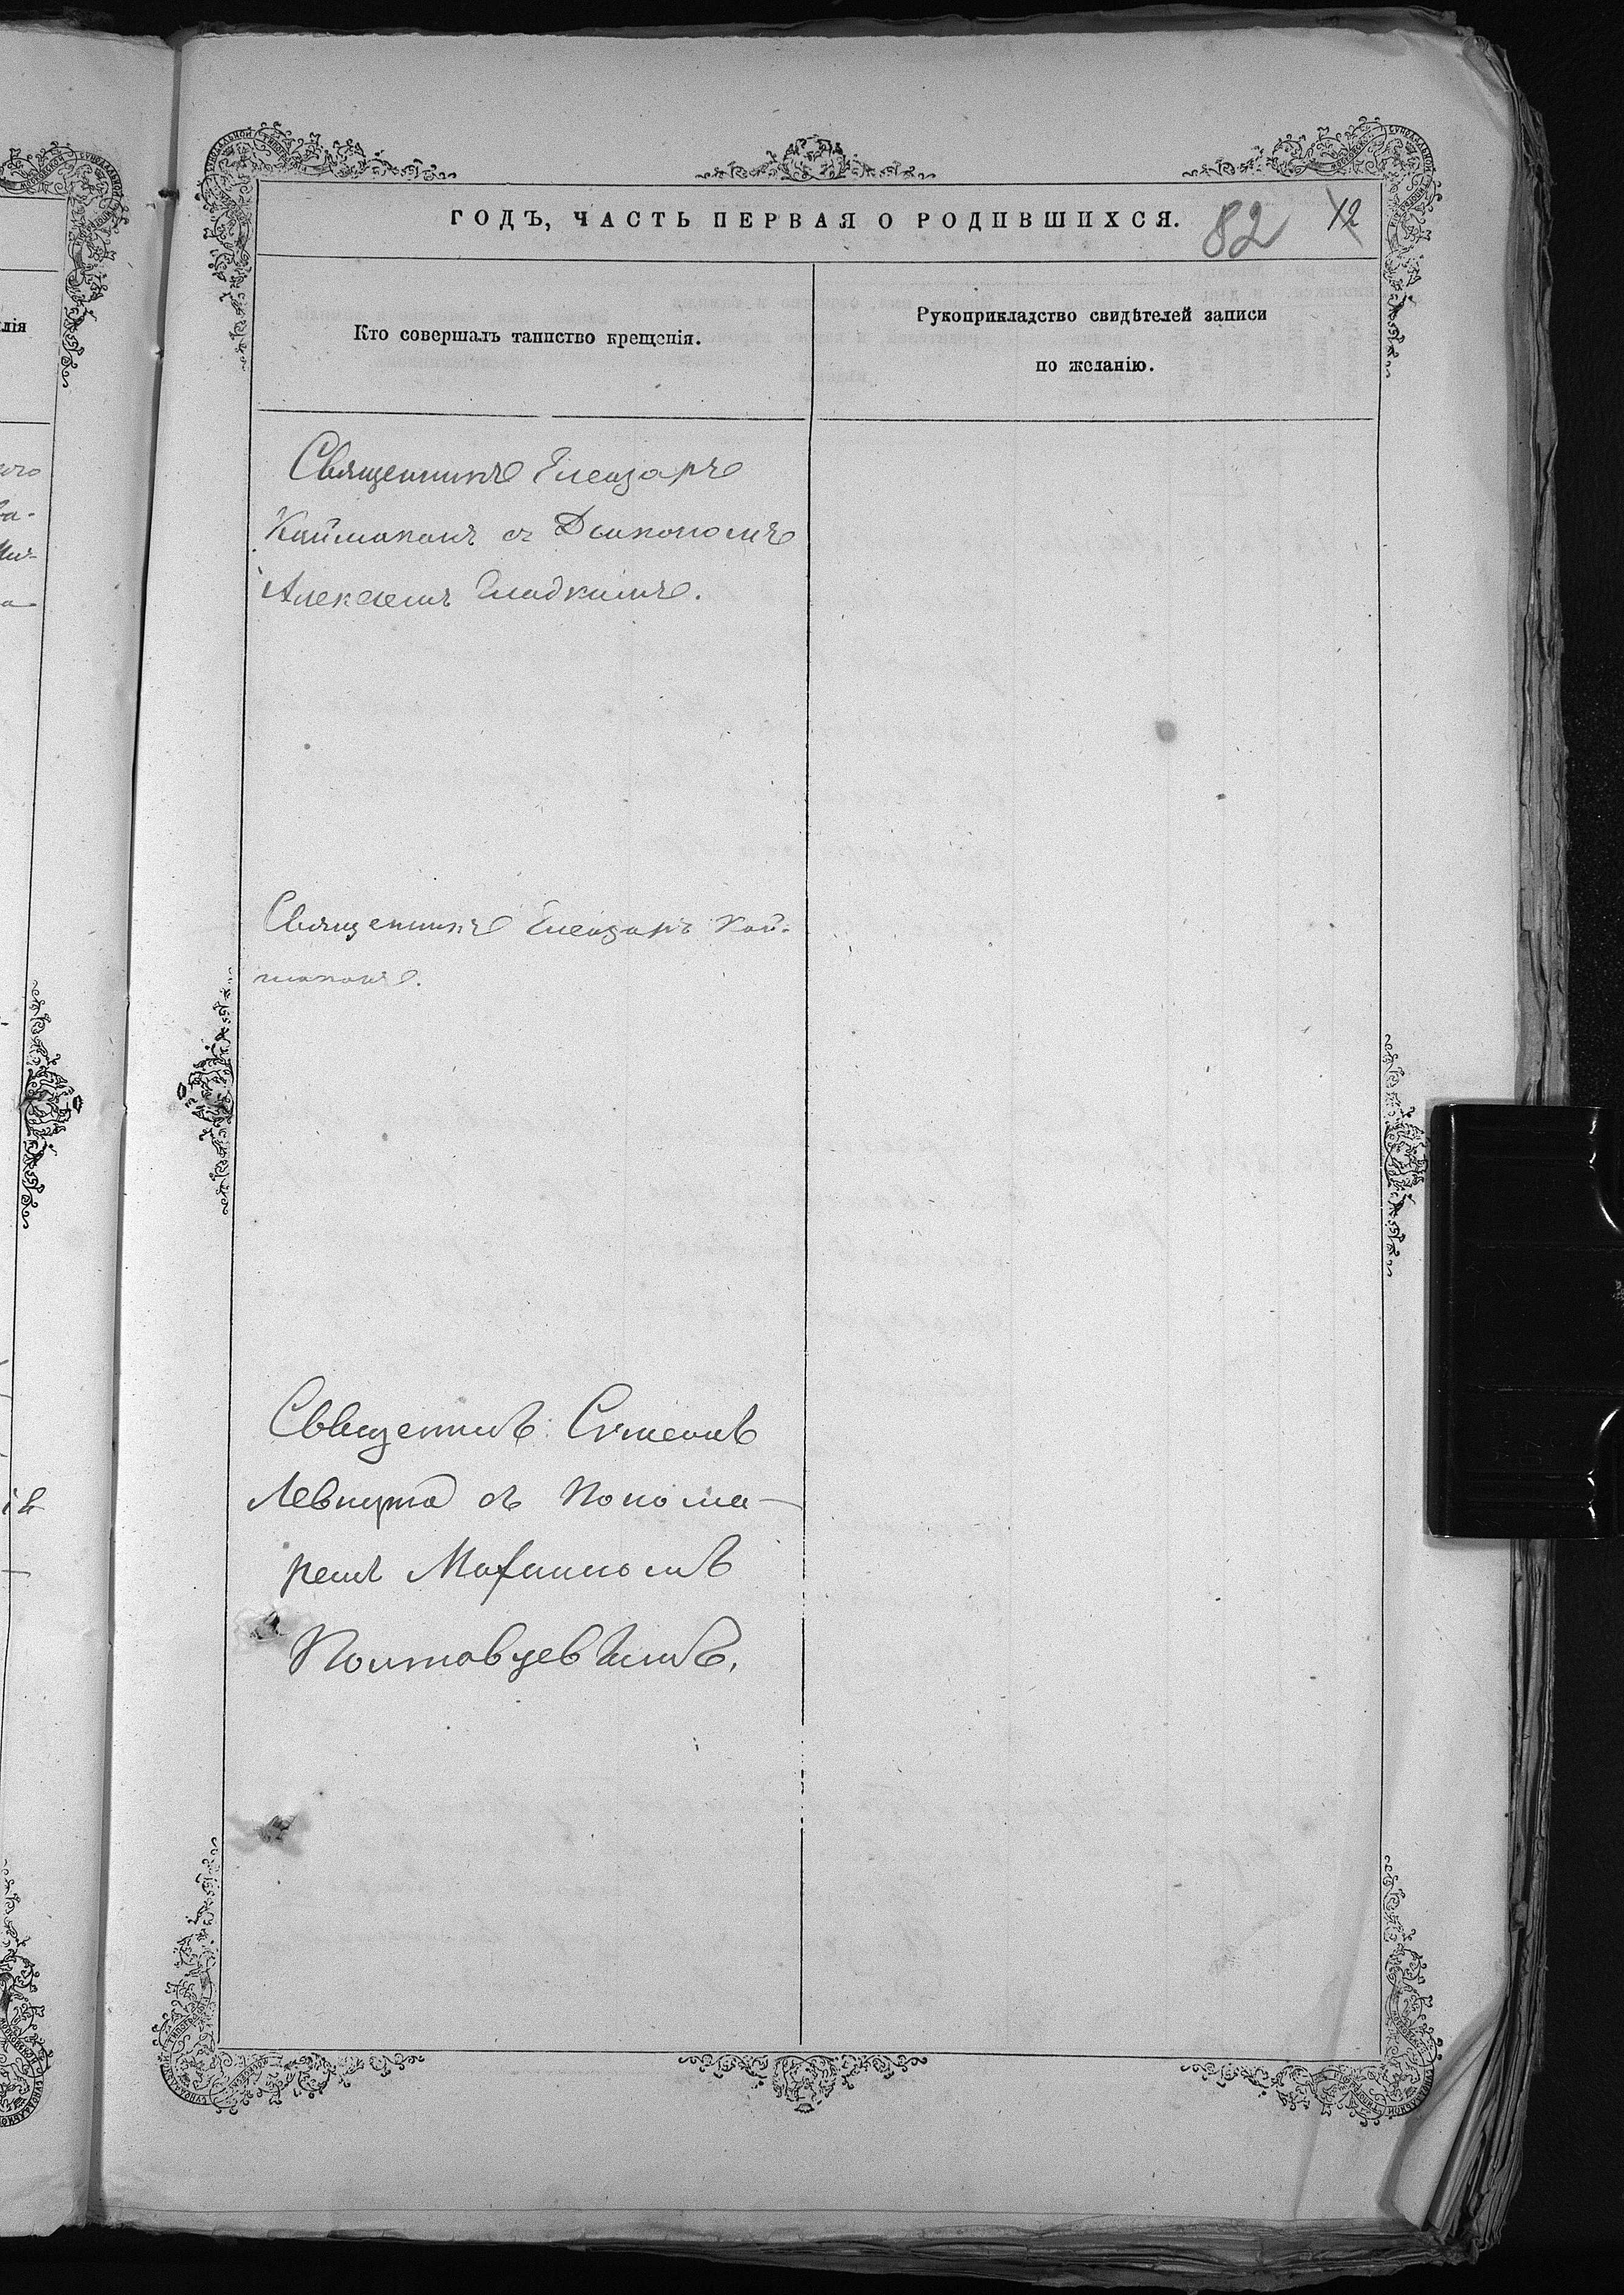 ГОДЪ, ЧАСТЬ ПЕРВАЯ О РОДИВШИХСЯ.
82
12
Кто совершалъ таинство крещенія.
Рукоприкладство свидѣтелей записи
по желанію.
Священникъ Елеазаръ
Каймаканъ съ Діакономъ
Алексеемъ Гладкимъ.
Священникъ Елеазаръ Кай-
маканъ.
Священникъ Симеонъ
съ Понома-
ремъ